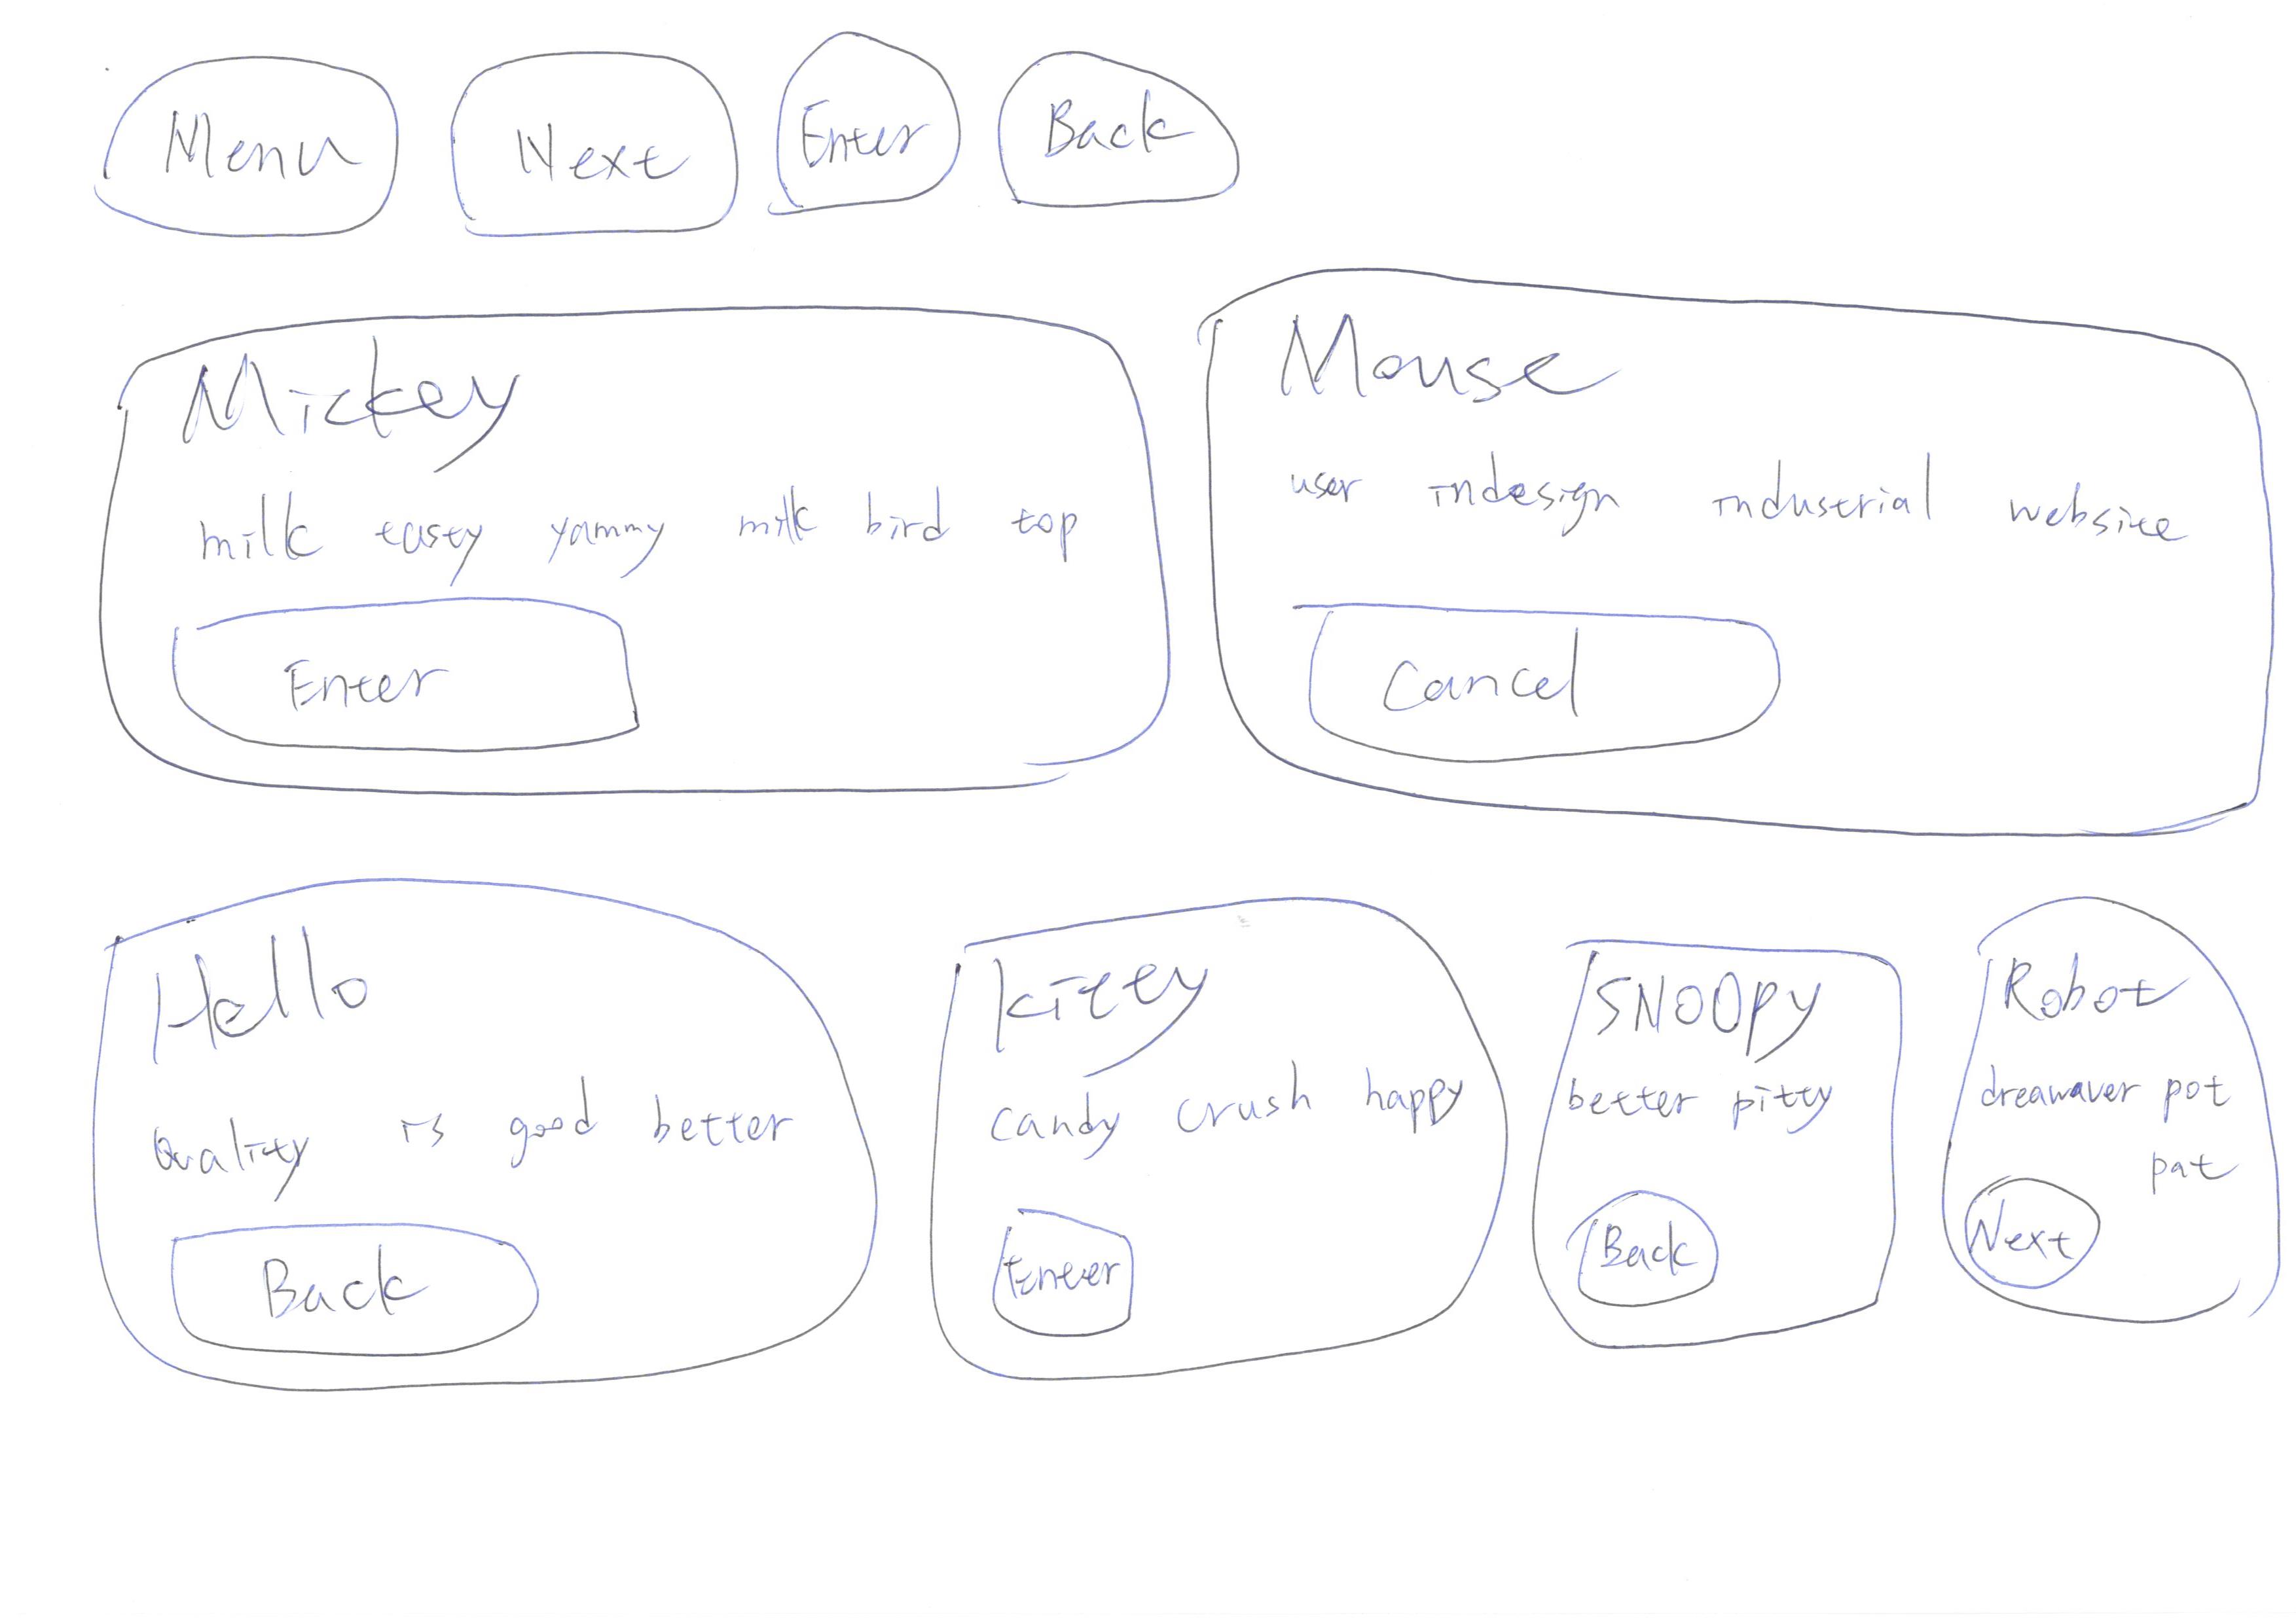 Menu Next Enter Back
Mickey
milk tasty yammy milk bird top
Enter
Mouse
user indesign industrial website
Cancel
Hello
Quality is good better
Back
kitty
candy crush happy
Enter
SNOOPY
better pitty
Back
Robot
dreawaver pot
pat
Next